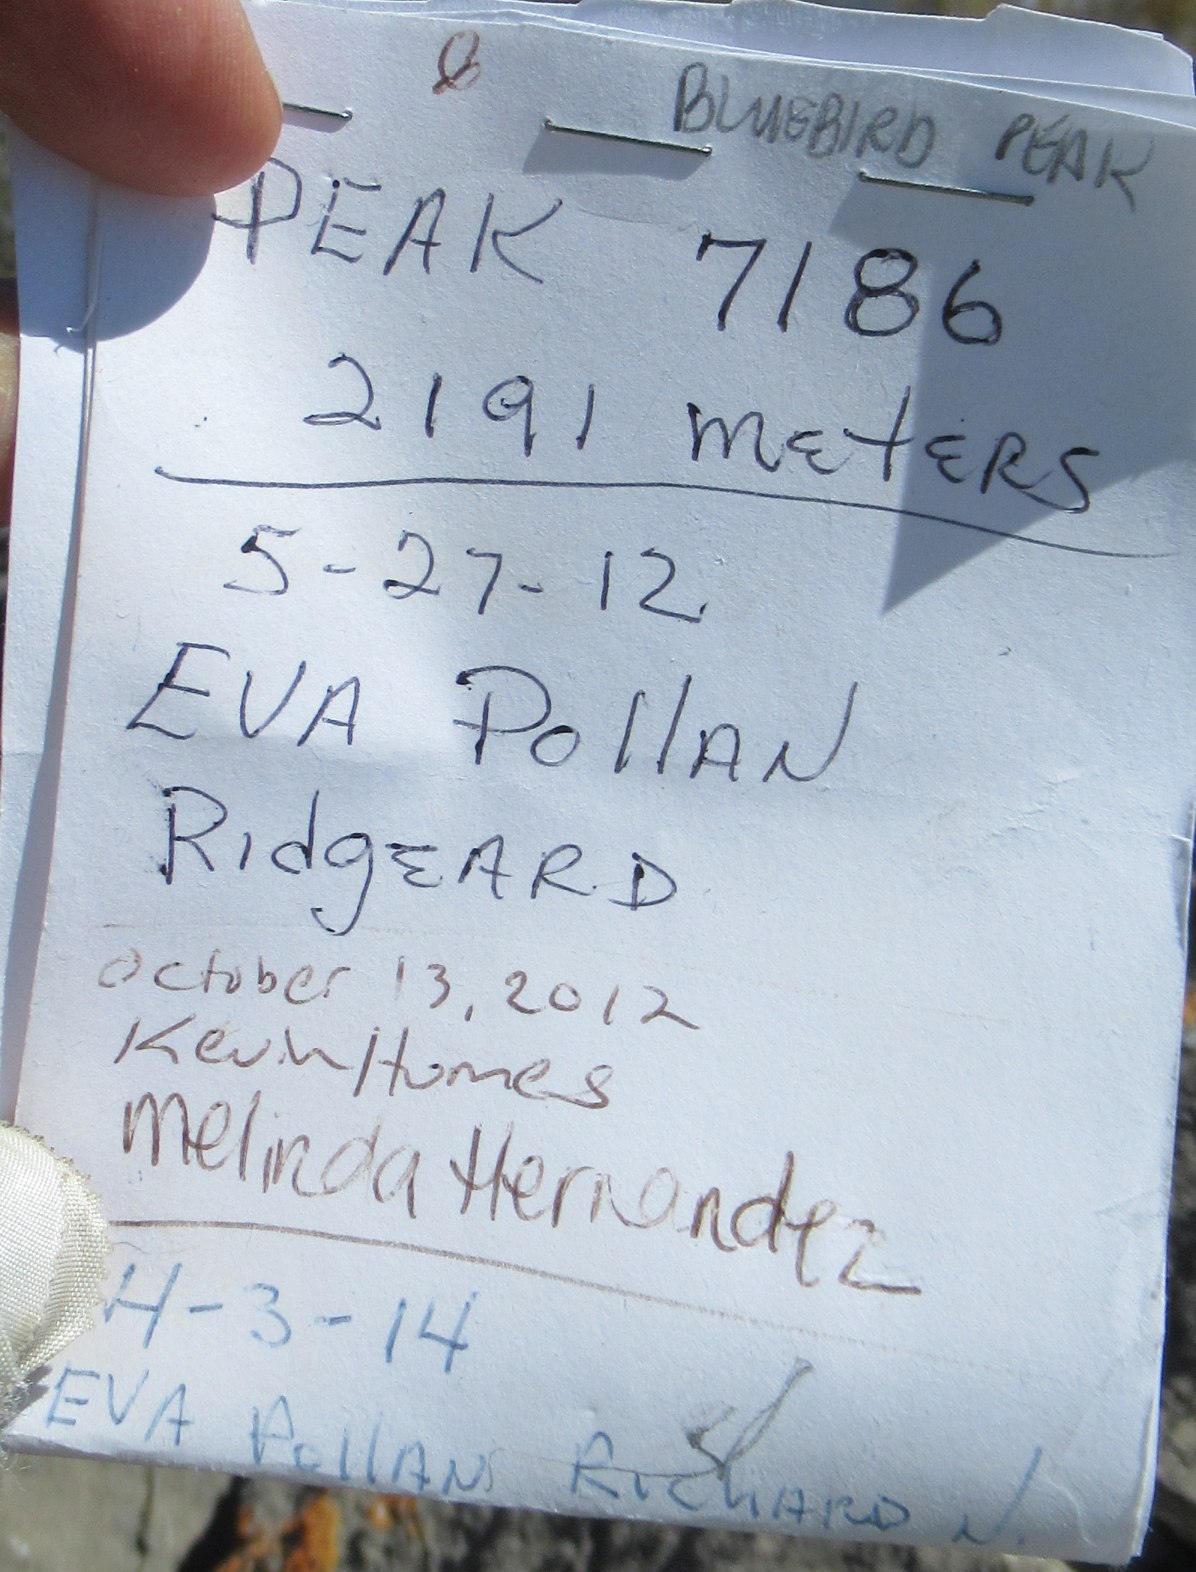 BLUEBIRD PEAK
PEAK 7186
2191 METERS
5-27-12
EVA PollAN
RidgEARD
October 13, 2012
Kevin Humes
Melinda Hernandez
4-3-14
EVA PollAN RICHARD N.